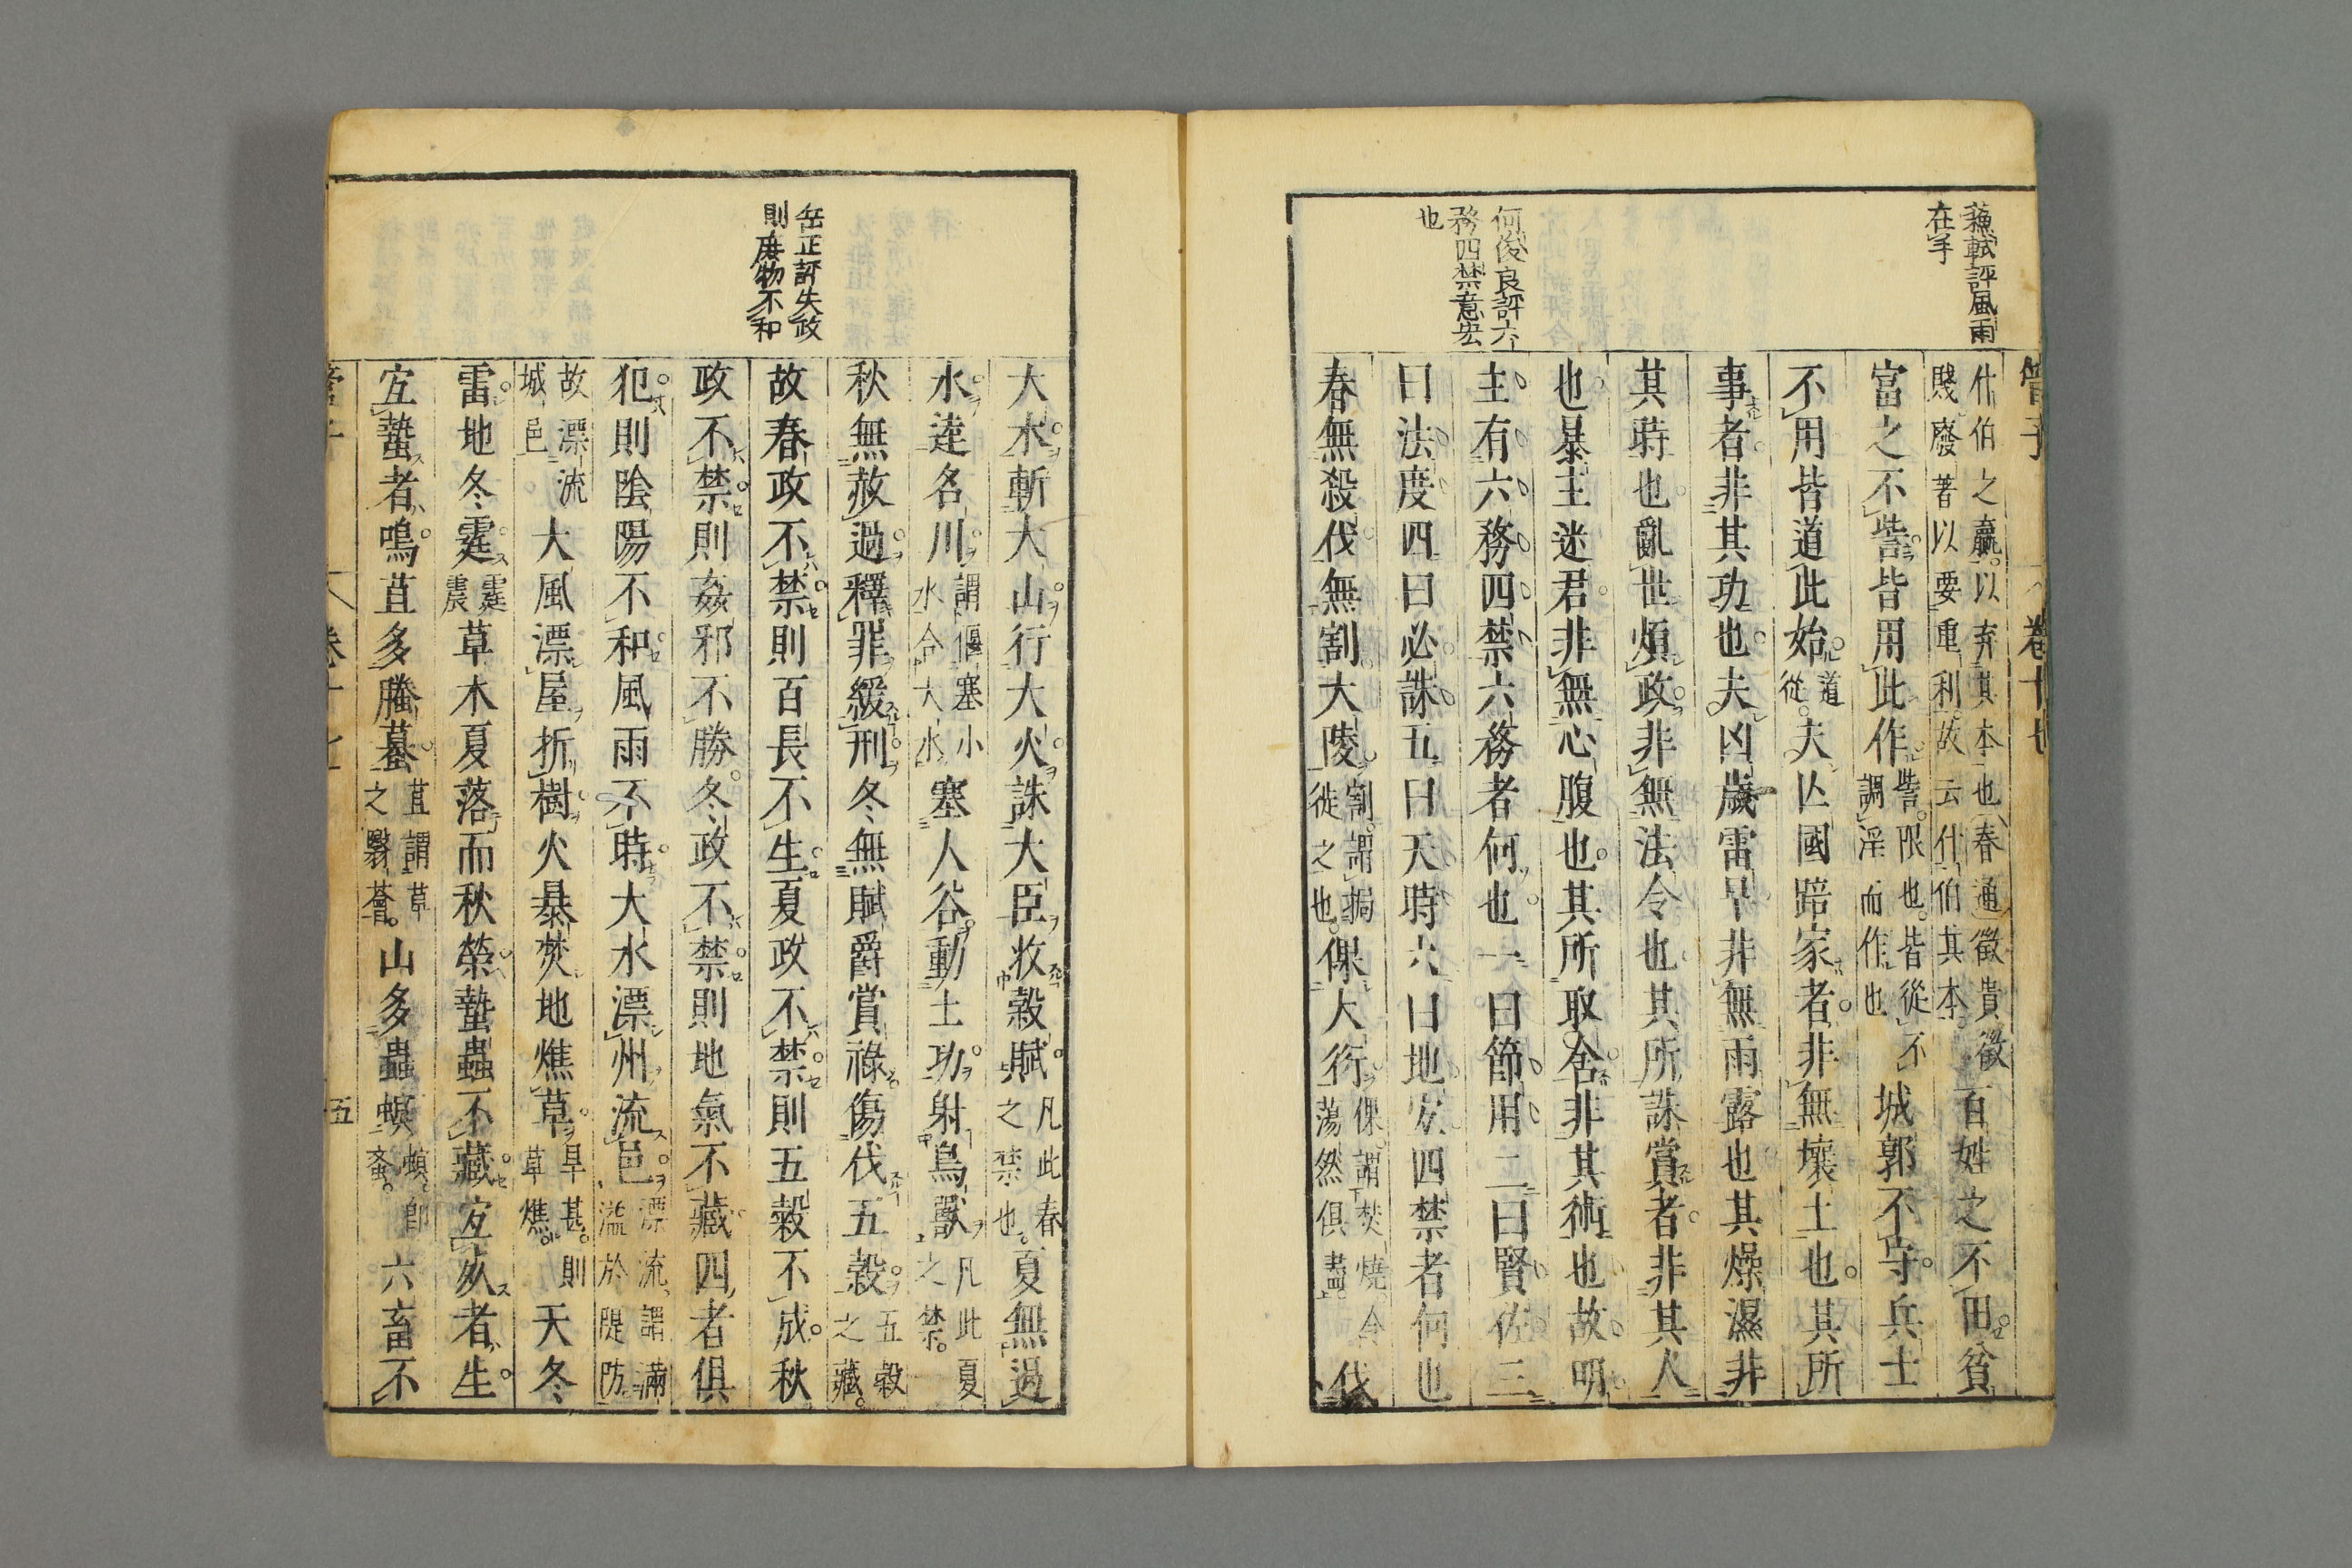 管子
卷十七
蘓軾評風雨
在手
何俊良評六
務四禁意宏
也
什伯之贏以弃其本也春通徵貴徵
賤廢著以要重利故云什伯其本
百姓之不田貧
富之不訾皆用此作
訾限也皆從不
調淫而作也
城郭不守兵士
不用皆道此始
道
從
夫亾國踣家者非無壤土也其所
事者非其功也夫凶歲雷旱非無雨露也其燥濕非
其時也亂世煩政非無法令也其所誅賞者非其人
也暴主迷君非無心腹也其所取舍非其術也故明
主有六務四禁六務者何也一曰節用二曰賢佐三
曰法度四曰必誅五曰天時六曰地宜四禁者何也
春無殺伐無割大陵
割謂掘
徙之也
倮大衍
倮謂焚燒令
蕩然俱盡
伐
岳正評失政
則庶物不和
大木斬大山行大火誅大臣收穀賦
凡此春
之禁也
夏無遏
水達名川
謂偃塞小
水合大水
塞人谷動土功射鳥獸
凡此夏
之禁
秋無赦過釋罪緩刑冬無賦爵賞祿傷伐五穀
五穀
之藏
故春政不禁則百長不生夏政不禁則五穀不成秋
政不禁則姦邪不勝冬政不禁則地氣不藏四者俱
犯則陰陽不和風雨不時大水漂州流邑
漂流謂滿
溢於隄防
故漂流
城邑
大風漂屋折樹火暴焚地燋草
旱甚則
草燋
天冬
雷地冬霆
霆
震
草木夏落而秋榮蟄蟲不藏宜死者生
宜蟄者鳴苴多螣蟇
苴謂草
之翳薈
山多蟲螟
螟即
蚉
六畜不
管子
卷十七
五